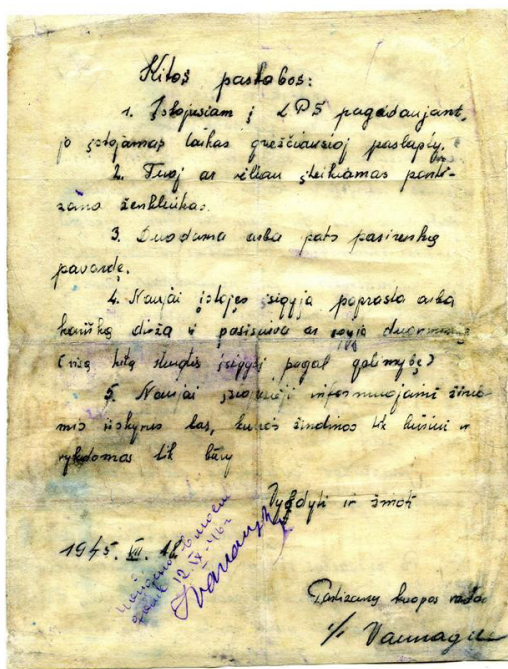 Kitos pastabos:
1. Įstojusiam į LPS pagadaujant,
jo įstojamas laikas griežčiausioj paslapty.
2. Tuoj ar vėliau įteikiamas parti-
zano ženkliukas.
3. Duodama arba pats pasirenką
pavardę.
4. Naujai įstojęs įsigyja paprastą arba
karišką diržą ir pasisiuva ar
(visą kitą įsigyji pagal galimybę)
5. Naujai informuojami žinio
mis išskyrus tas, kurios žindinos tik būriui ir
vykdomas tik būry
Vykdyti ir žinoti
1945. VII. 18
12-IX-46
Partizanų kuopos vadas
Vanagas